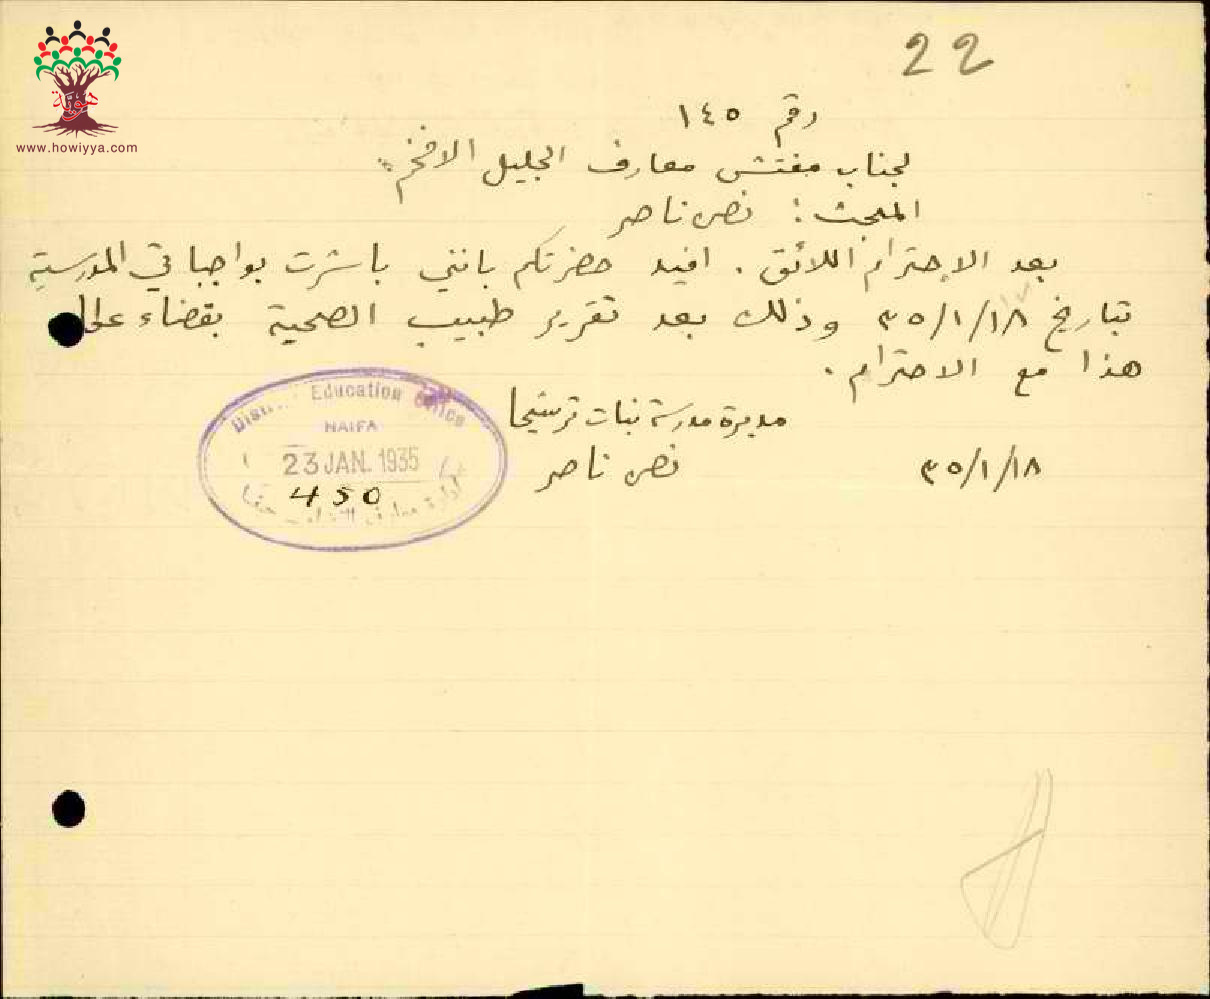 22
هوية
www.howiyya.com
رقم ١٤٥
لجناب مفتش معارف الجليل الافخم
المبحث: نصره ناصر
بعد الاحترام اللائق. افيد حضرتكم بانني باشرت بواجباتي المدرسية
بتاريخ ٣٥/١/١٨ وذلك بعد تقرير طبيب الصحية بقضاء عكا
هذا مع الاحترام.
مديرة مدرسة بنات ترشيحا
٣٥/١/١٨ نصره ناصر
Education Office
HAIFA
23 JAN. 1935
450
ادارة معارف